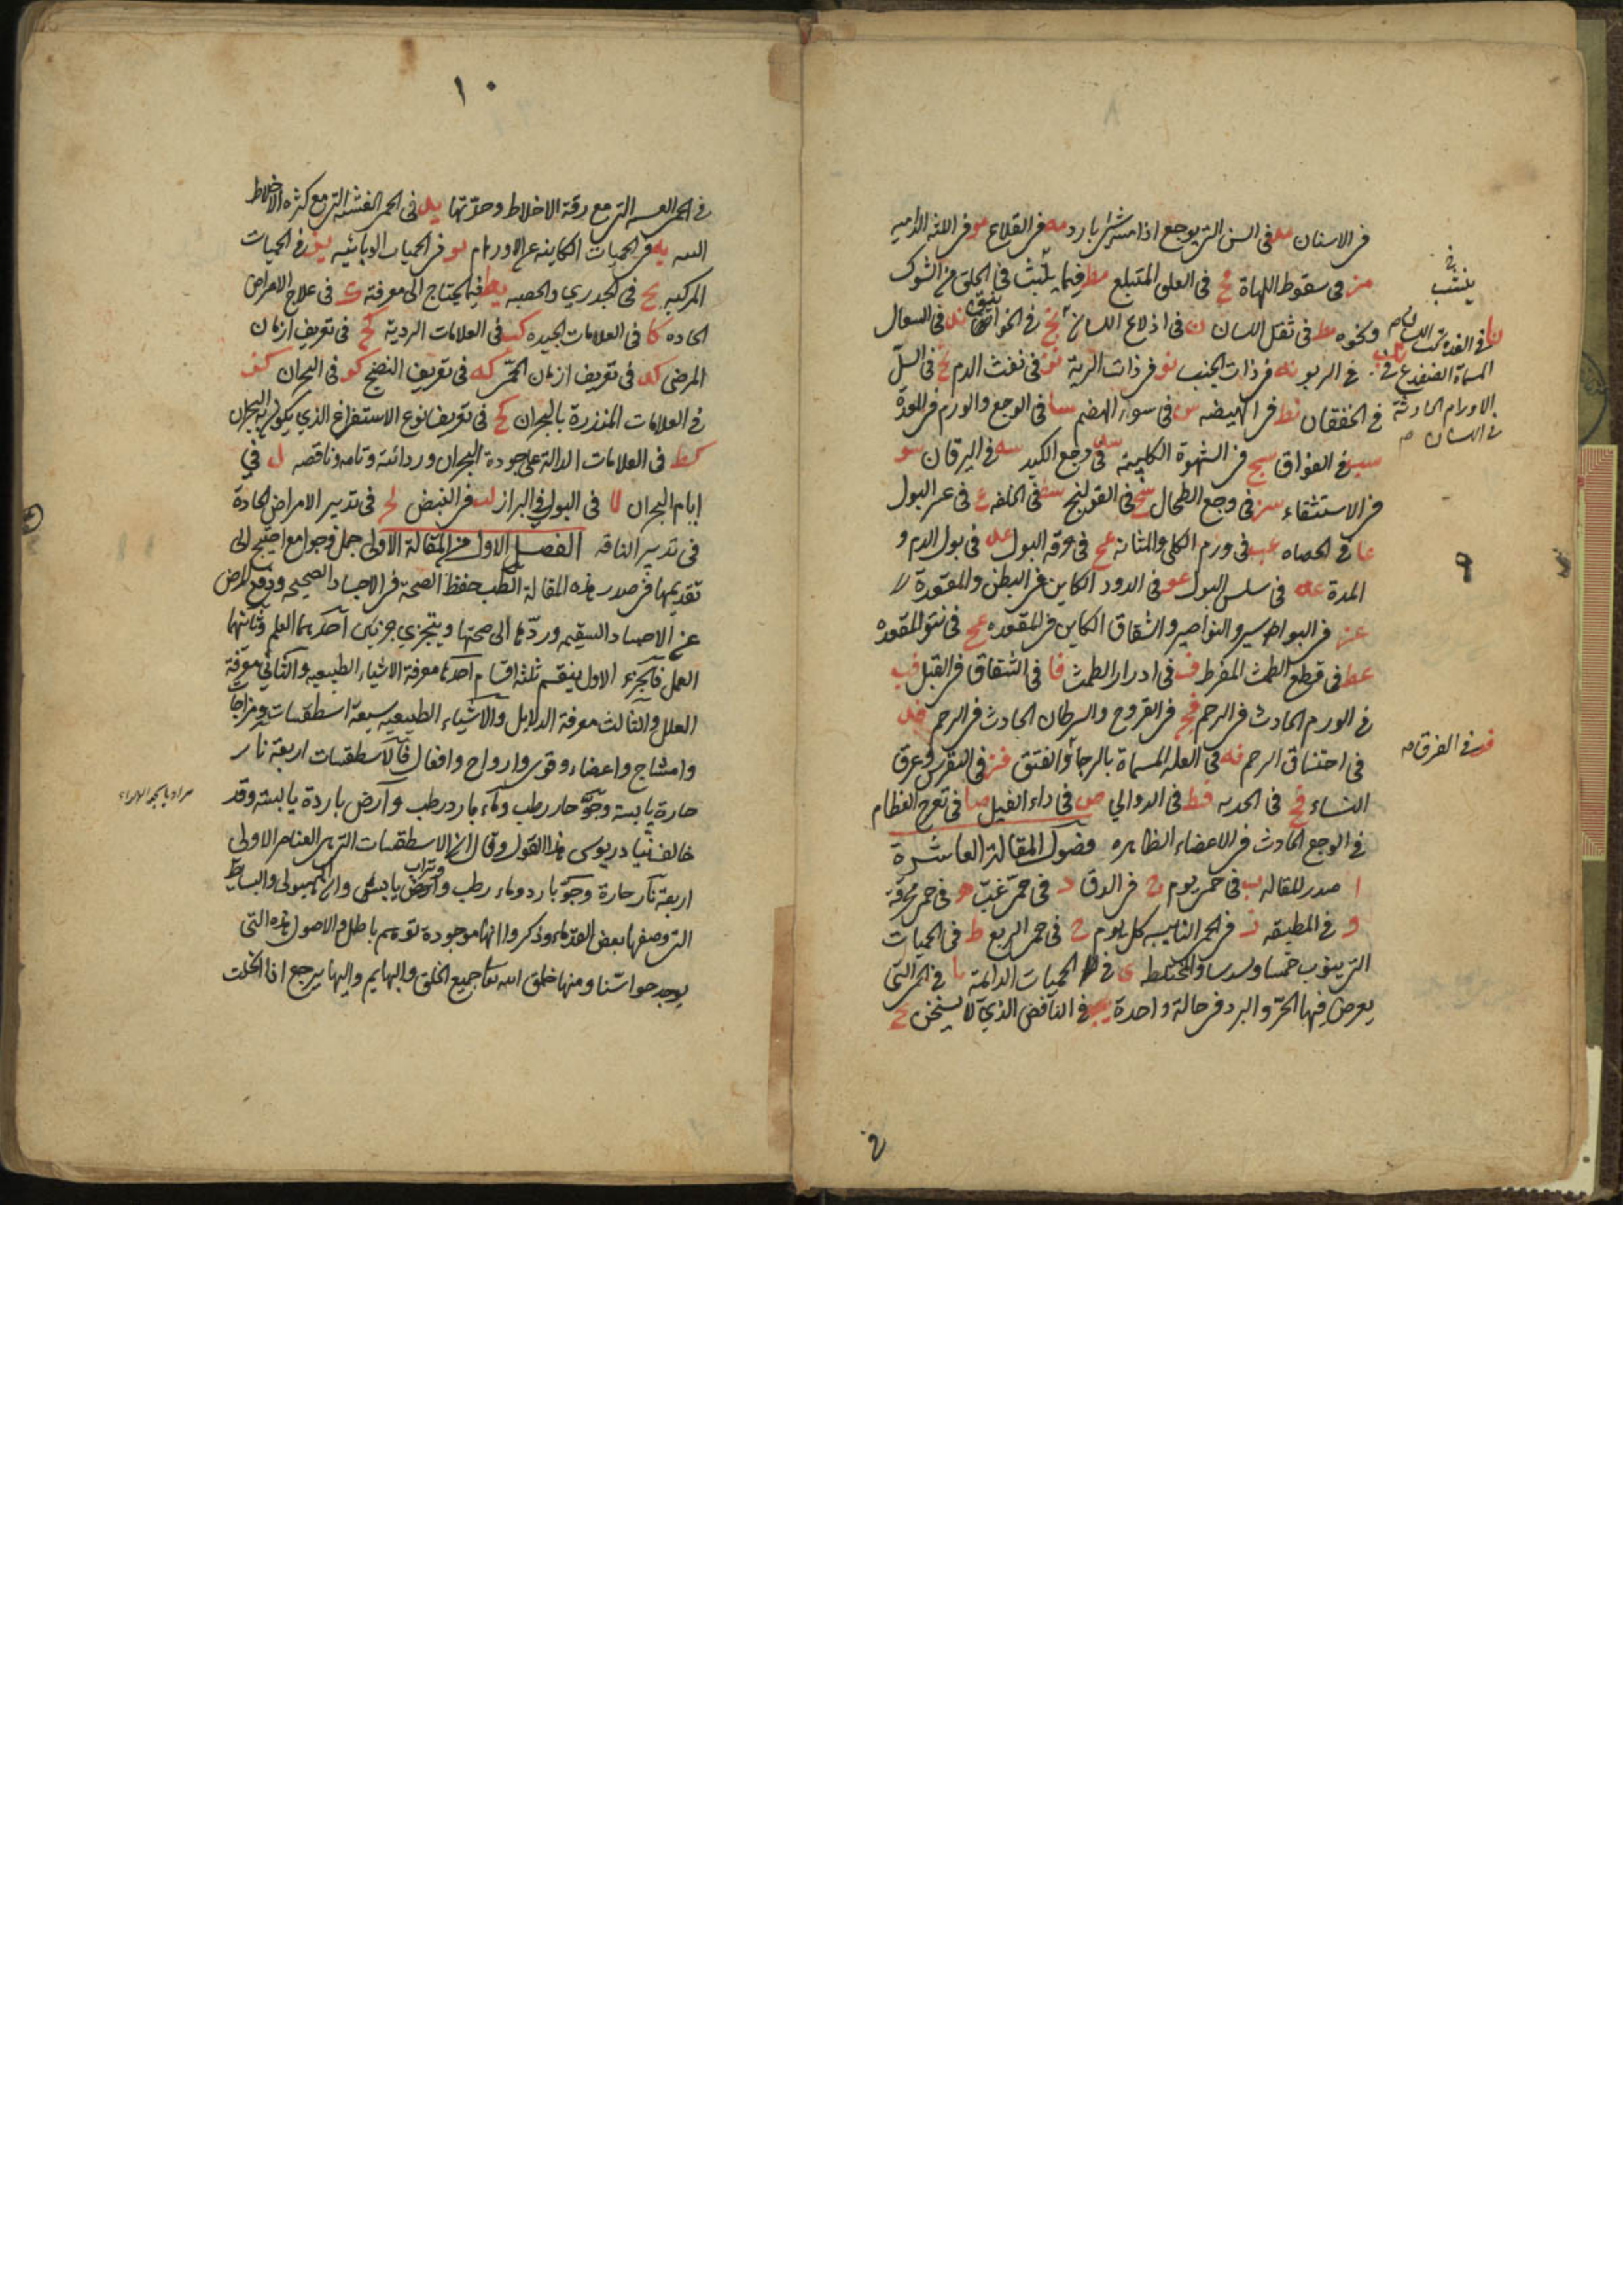 في الاسنان مد في السن التي يوجع اذا مسه شراب بارد مه في القلاع مو في اللثه الداميه
مز في سقوط اللهاة مح في العلق المتبلع مط فيما ينشب في الحلق من الشوك
ونحوه مط في ثقل اللسان ن في اذلاع اللسان نج في الخوانيق ند في السعال
في الربو نه في ذات الجنب نو في ذات الرية نز في نفث الدم نح في السل
في الخفقان نط في الهيضه س في سوء الهضم سا في الوجع والورم في المعدة
سب في الفواق سج في الشهوة الكلبية سد في وجع الكبد سه في اليرقان سو
في الاستسقاء سز في وجع الطحال سح في القولنج سط في الخلفه ع في عسر البول
عا في الحصاه عب في ورم الكلى والمثانة عج في حرقة البول عد في بول الدم و
المدة عه في سلس البول عو في الدود الكاين في البطن والمقعدة
عز في البواسير والنواصير والشقاق الكاين في المقعده عح في نتو المقعده
عط في قطع الطمث المفرط ف في ادرار الطمث فا في الشقاق في القبل فب
في الورم الحادث في الرحم فج في القروح والسرطان الحادث في الرحم فد
في اختناق الرحم فه في العله المسماة بالرجا والفتق فز في النقرس وعرق
النساء فح في الحدبه فط في الدوالي ص في داء الفيل صا في تعرج العظام
في الوجع الحادث في الاعضاء الظاهره فصول المقالة العاشرة
ا صدر المقاله ب في حمى يوم ج في الدق د في حمى غب ه في حمى محرقة
و في المطبقه ز في الحمى النايبه كل يوم ح في حمى الربع ط في الحميات
التي ينوب خمسا وسدسا والمختلط ى في الحميات الدايمة يا في الحمى التي
يعرض فيها الحر والبرد في حالة واحدة يب في النافض الذي لا يسخن يج
ينشب
نا في الغدة تحت اللسان
المسماة الضفدع نب في
الاورام الحادثة
في اللسان
٩
فو في الفرق
١٠
في الحمى التي مع رقة الاخلاط وحدتها يد في الحمى الغشيية التي مع كثرة الاخلاط
يه في الحميات الكاينه عن الاورام يو في الحميات الوبائيه يز في الحميات
المركبه يح في الجدري والحصبه يط فيما يحتاج الى معرفته ك في علاج الامراض
الحاده كا في العلامات الجيده كب في العلامات الردية كج في تعريف ازمان
المرض كد في تعريف ازمان الحمى كه في تعريف النضج كو في البحران كز
في العلامات المنذرة بالبحران كح في تعريف نوع الاستفراغ الذي يكون به البحران
كط في العلامات الدالة على جودة البحران وردائته وتامه وناقصه ل في
ايام البحران لا في البول وفي البراز لب في النبض لج في تدبير الامراض الحادة
في تدبير الناقه الفصل الاول من المقالة الاولى جمل وجوامع احتيج الى
تقديمها في صدر هذه المقالة الطب حفظ الصحة في الاجساد الصحيحه ودفع المرض
عن الاجساد السقيمه وردها الى صحتها ويتجزي جزئين احدهما العلم وثانيها
العمل فالجزء الاول ينقسم ثلثة اقسام احدها معرفة الاشياء الطبيعيه والثاني معرفة
العلل والثالث معرفة الدلايل والاشياء الطبيعيه سبعة اسطقسات ومزاجات
وامشاج واعضاء وقوى وارواح وافعال فالاسطقسات اربعة نار
حارة يابسة وجو حار رطب وماء بارد رطب وارض باردة يابسة وقد
خالف ثيادريوس هذا القول وقال ان الاسطقسات التي هي العناصر الاولى
اربعة نار حارة وجو بارد وماء رطب وارض يابس وان الهيولى والبسايط
التي وصفها بعض القدماء وذكروا انها موجودة توهم باطل والاصول هذه التي
يوجد حواسنا ومنها خلق الله تعالى جميع الخلق والبهايم واليها يرجع اذا انحلت